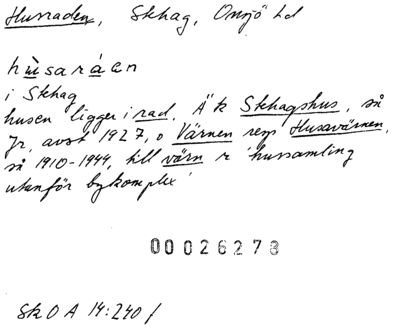 Husraden, Skhag, Onsjö hd
hùsaráen
i Skhag
husen ligger i rad. Äk Skhagshus, så
Jr, avst 1927, o Värnen resp Husavärnen,
så 1910-1944, till värn r 'hussamling
utanför bykomplex'
00026278
SkOA 14:240 /